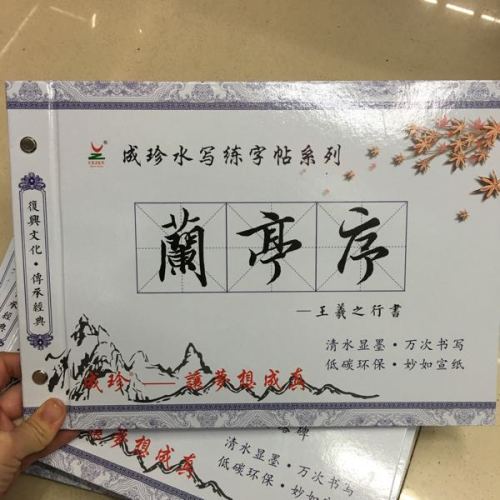 成珍水写练字帖系列
復興文化·傳承經典
蘭亭序
—王羲之行書
清水显墨·万次书写
低碳环保·妙如宣纸
成珍——讓夢想成真
碑
清水显墨·万次书写
低碳环保·妙如宣纸